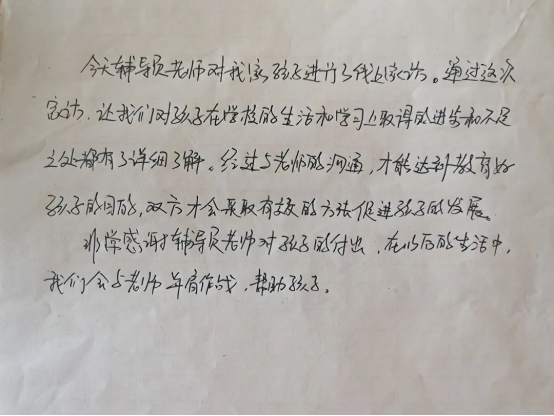 今天辅导员老师对我家孩子进行了线上家访。通过这次
家访，让我们对孩子在学校的生活和学习上取得的进步和不足
之处都有了详细了解。经过与老师的沟通，才能达到教育好
孩子的目的，双方才会采取有效的方法促进孩子的发展。
非常感谢辅导员老师对孩子的付出，在以后的生活中，
我们会与老师并肩作战，帮助孩子。